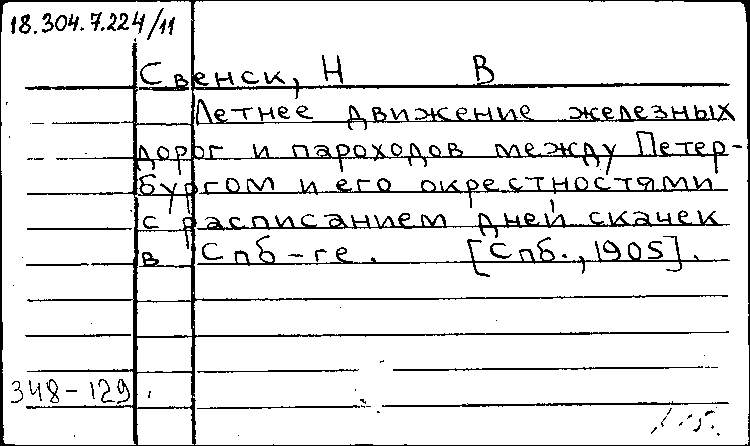 18.304.7.224/11
Свенск, Н В
Летнее движение железных
дорог и пароходов между Петер-
бургом и его окрестностями
с расписанием дней скачек
в Спб-ге. [Спб., 1905].
348-129